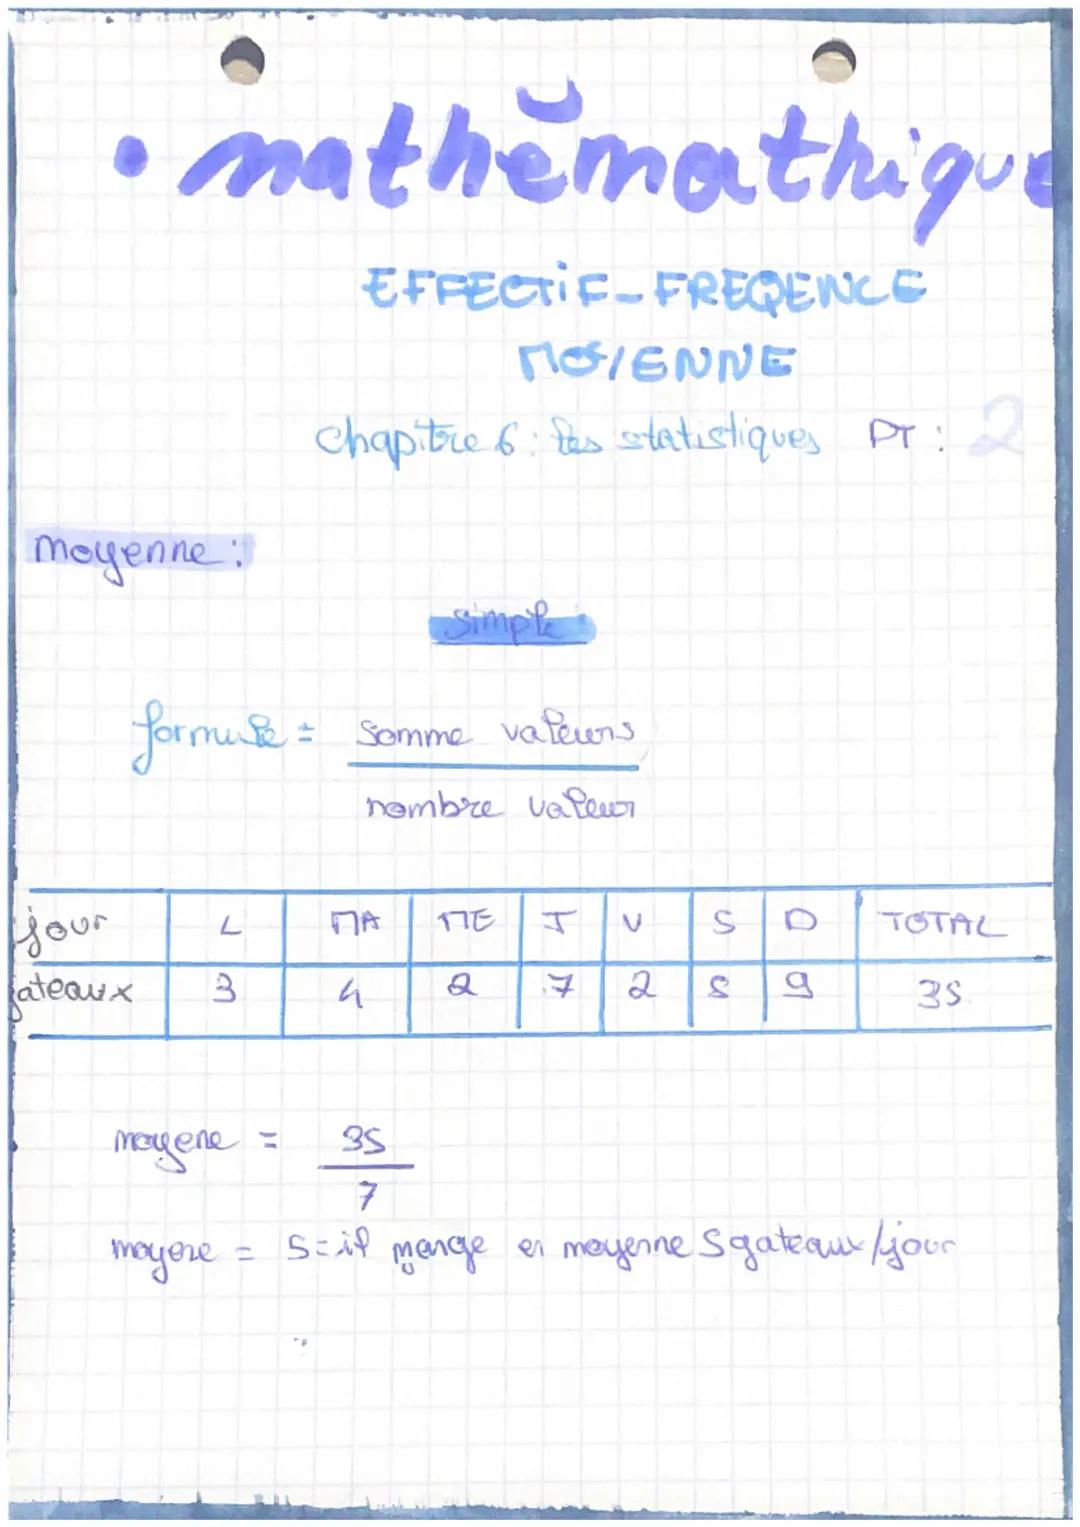 • mathĕmathique
EFFECTIF-FREQENCE
MOYENNE
chapitre 6: les statistiques PT: 2
moyenne:
simple:
formule = somme valeurs
nombre valeur
jour L MA ME J V S D TOTAL
gateaux 3 4 2 7 2 8 9 35
moyene = 35
7
moyene = 5 = il mange en moyenne 5 gateaux/jour